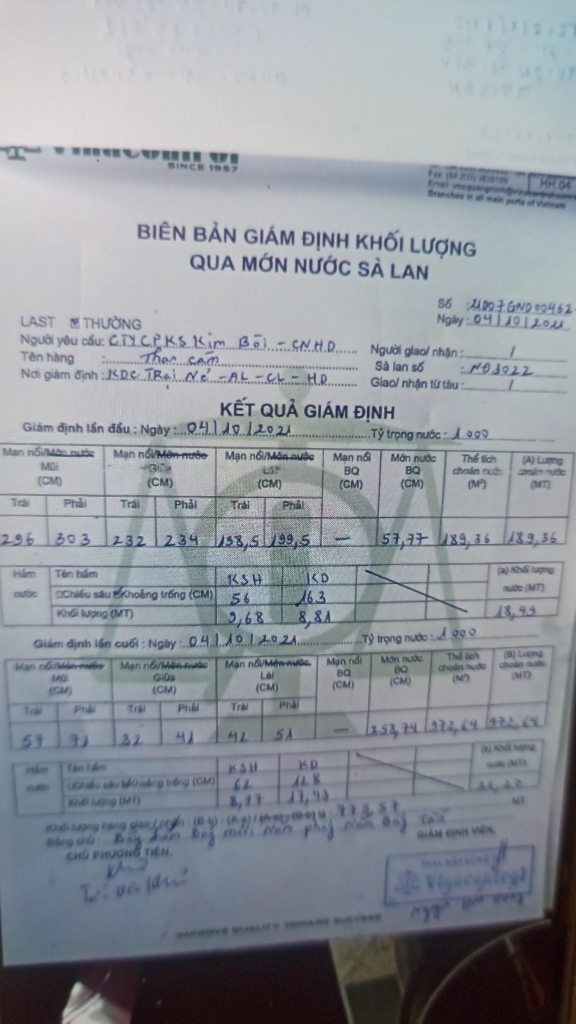 SINCE 1957
HH 04
Branches in all main ports of Vietnam
BIÊN BẢN GIÁM ĐỊNH KHỐI LƯỢNG
QUA MỚN NƯỚC SÀ LAN
Số :
Ngày : 04/10/2021
LAST THƯỜNG
Người yêu cầu: CTYCPKS Kim Bôi - CNHD
Người giao/ nhận : /
Tên hàng : Than cám
Sà lan số : NĐ3022
Nơi giám định : KDC Trại Nẻ - AL - CL - HD
Giao/ nhận từ tàu : /
KẾT QUẢ GIÁM ĐỊNH
Giám định lần đầu : Ngày : 04/10/2021 Tỷ trọng nước : 1.000
Mạn nổi/Mớn nước Mũi (CM) Mạn nổi/Mớn nước Giữa (CM) Mạn nổi/Mớn nước Lái (CM) Mạn nổi BQ (CM) Mớn nước BQ (CM) Thể tích choán nước (M³) (A) Lượng choán nước (MT)
Trái Phải Trái Phải Trái Phải
296 303 232 234 198,5 199,5 — 57,77 189,36 189,36
Hầm nước Tên hầm KSH KD (a) Khối lượng nước (MT)
Chiều sâu Khoảng trống (CM) 56 163
Khối lượng (MT) 9,68 8,81 18,49
Giám định lần cuối : Ngày : 04/10/2021 Tỷ trọng nước : 1.000
Mạn nổi/Mớn nước Mũi (CM) Mạn nổi/Mớn nước Giữa (CM) Mạn nổi/Mớn nước Lái (CM) Mạn nổi BQ (CM) Mớn nước BQ (CM) Thể tích choán nước (M³) (B) Lượng choán nước (MT)
Trái Phải Trái Phải Trái Phải
57 71 32 41 42 51 — 253,74 972,64 972,64
Hầm nước Tên hầm KSH KD (b) Khối lượng nước (MT)
Chiều sâu Khoảng trống (CM) 62 128
Khối lượng (MT) 8,77
Khối lượng hàng giao/nhận MT
Bằng chữ :
CHỦ PHƯƠNG TIỆN, GIÁM ĐỊNH VIÊN,
Vinacontrol